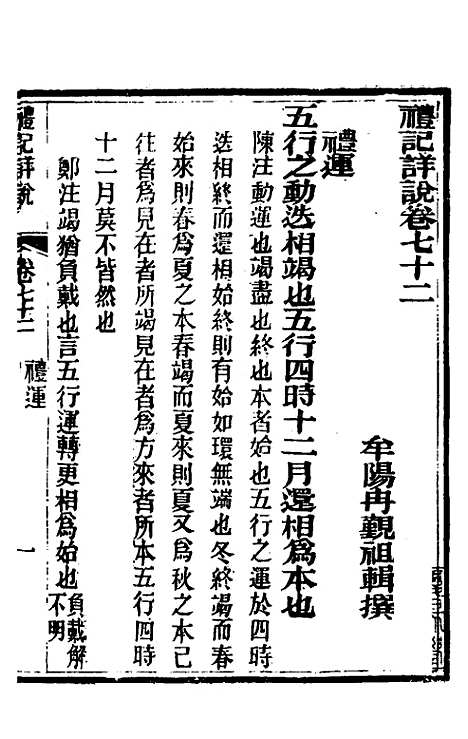 禮記詳說卷七十二
牟陽冉覲祖輯撰
禮運
五行之動迭相竭也五行四時十二月還相爲本也
陳注動運也竭盡也終也本者始也五行之運於四時
迭相終而還相始終則有始如環無端也冬終竭而春
始來則春爲夏之本春竭而夏來則夏又爲秋之本已
往者爲見在者所竭見在者爲方來者所本五行四時
十二月莫不皆然也
鄭注竭猶負戴也言五行運轉更相爲始也負戴解
不明
禮記詳說
卷七十二
禮運
一